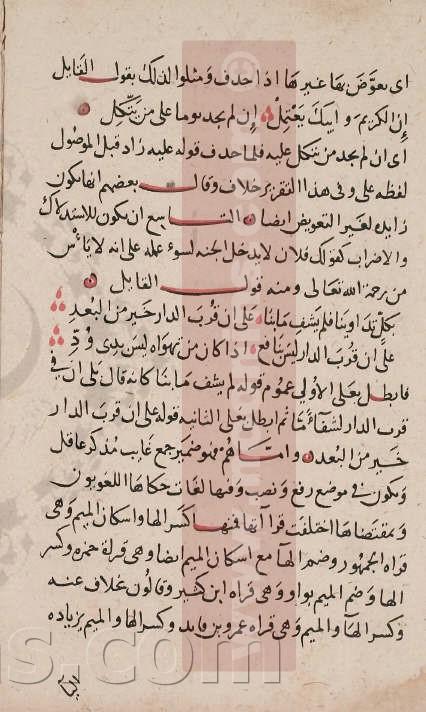 اى يعوّض بها غيرها اذا حذف ومثلوا لذلك بقول القايل
إن الكريم وابيك يعتمل إن لم يجد يوما على من يتّكل
اى ان لم يجد من يتكل عليه فلما حذف قوله عليه زاد قبل الموصول
لفظه على وفى هذا التقرير خلاف وقال بعضهم انها تكون
زايده لغير التعويض ايضا التاسع ان يكون للاستدراك
والاضراب كقولك فلان لا يدخل الجنه لسوء عمله على انه لا يأيس
من رحمة الله تعالى ومنه قول القايل
بكلٍّ تداوينا فلم يشف ما بنا على ان قرب الدار خير من البعد
على ان قرب الدار ليس بنافع اذا كان من تهواه ليس بذى ودّ
فابطل بعلى الاولى عموم قوله لم يشف ما بنا كانه قال بلى ان فى
قرب الدار لشفآءً ما ثم ابطل بعلى الثانيه قوله على ان قرب الدار
خير من البعد وامّا هم فهو ضمير جمع غايب مذكر عاقل
ويكون فى موضع رفع ونصب وفيها لغات حكاها اللغويون
وبمقتضاها اختلفت قرآآتها فمنها كسر الها واسكان الميم وهى
قراه الجمهور وضم الهآ مع اسكان الميم ايضا وهى قراة حمزه وكسر
الها وضم الميم بواو وهى قراه ابن كثير وقالون بخلاف عنه
وكسر الهآ والميم وهى قراه عمرو بن فايد وكسر الها والميم بزياده
اليا
ns.com